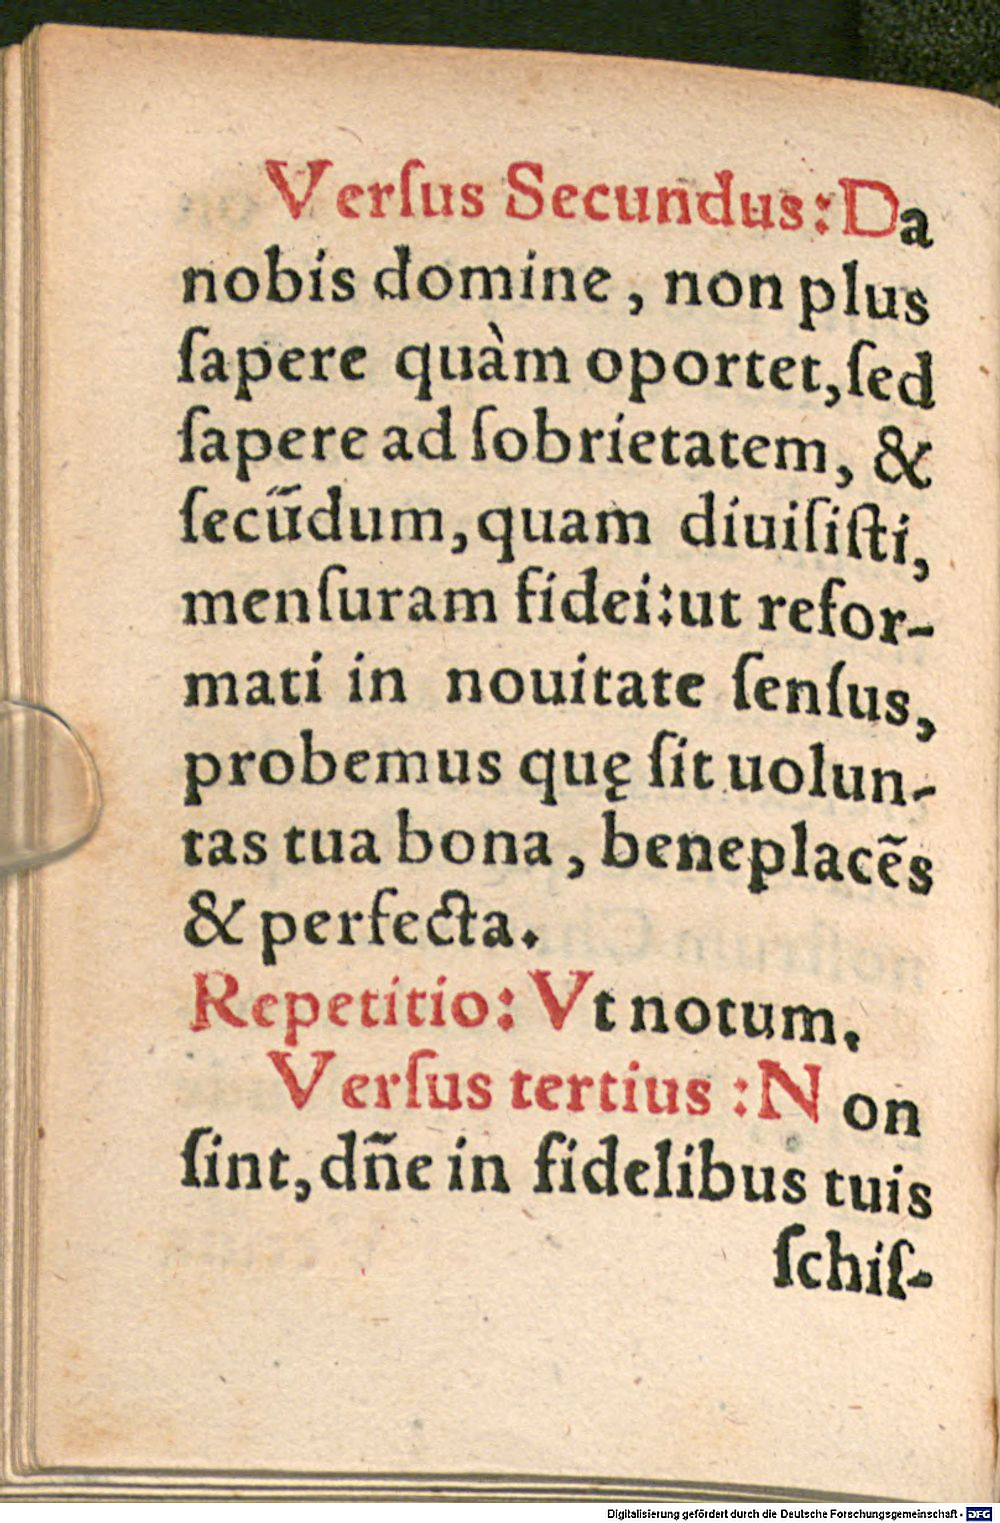 Verſus Secundus: Da
nobis domine, non plus
ſapere quàm oportet, ſed
ſapere ad ſobrietatem, &
ſecũdum, quam diuiſiſti,
menſuram fidei: ut refor-
mati in nouitate ſenſus,
probemus quę ſit uolun-
tas tua bona, beneplacẽs
& perfecta.
Repetitio: Vt notum.
Verſus tertius: Non
ſint, dñe in fidelibus tuis
ſchiſ-
Digitalisierung gefördert durch die Deutsche Forschungsgemeinschaft - DFG